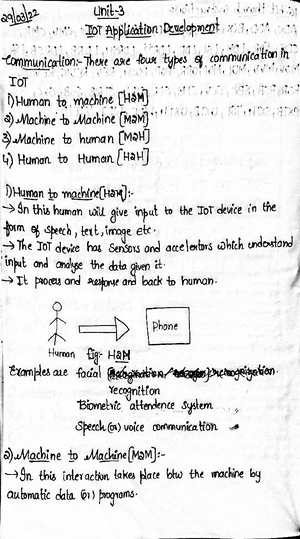 29/03/22
Unit-3
IOT Application Development
Communication:- There are four types of communication in
IOT
1) Human to machine [H2M]
2) Machine to Machine [M2M]
3) Machine to human [M2H]
4) Human to Human [H2H]
1) Human to machine [H2M]:-
→ In this human will give input to the IOT device in the
form of speech, text, image etc.
→ The IOT device has sensors and accelertors which understand
input and analyse the data given it.
→ It process and response and back to human.
Phone
Human fig:- H2M
Examples are facial
recognition
Biometric attendence system
Speech (or) voice communication
2) Machine to Machine [M2M]:-
→ In this interaction takes place btw the machine by
automatic data (or) programs.